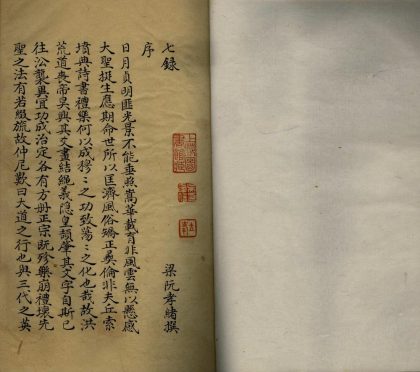 七錄
梁阮孝緒撰
序
日月貞明匪光景不能垂照嵩華載育非風雲無以懸感
大聖挺生應期命世所以匡濟風俗矯正彝倫非夫丘索
墳典詩書禮樂何以成穆〻之功致蕩〻之化也哉故洪
荒道喪帝昊興其爻畫結繩義隱皇頡肇其文字自斯已
往沿襲異宜功成治定各有方冊正宗既殄樂崩禮壞先
聖之法有若綴旒故仲尼歎曰大道之行也與三代之英